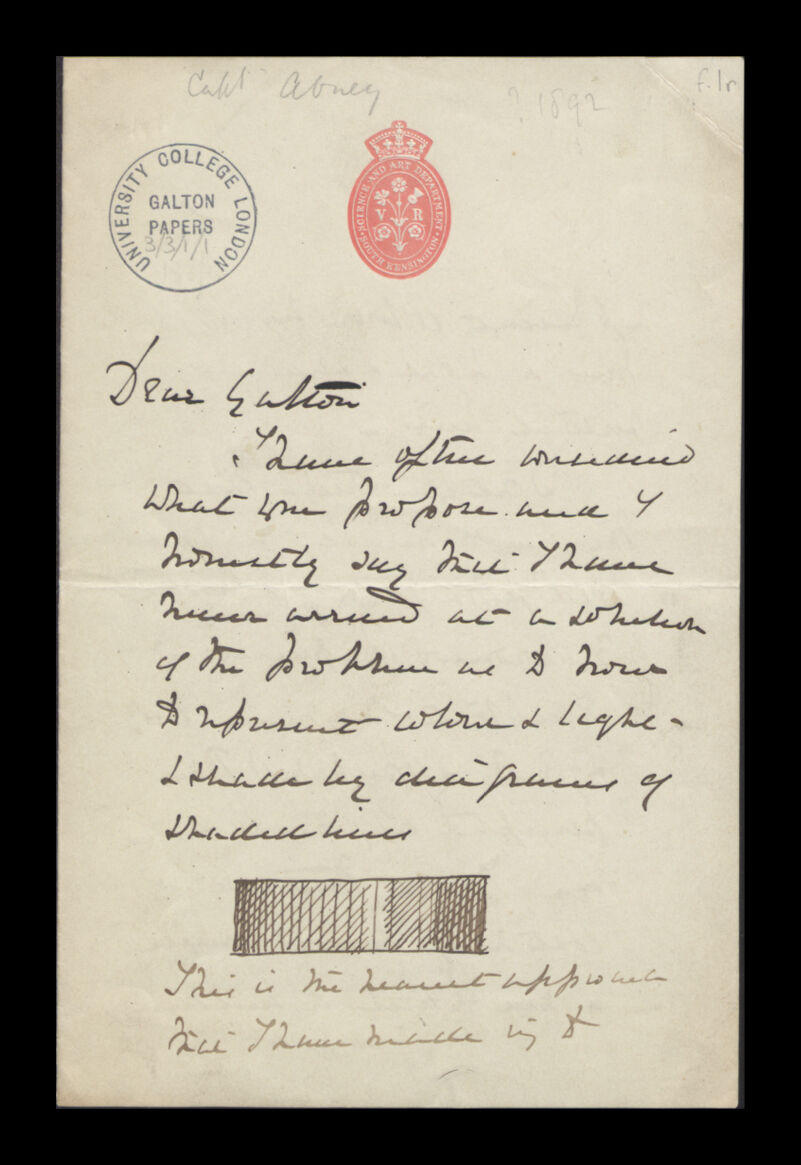 Capt Abney
? 1892
f.1r
UNIVERSITY COLLEGE LONDON
GALTON
PAPERS
3/3/1/1
SCIENCE AND ART DEPARTMENT
V R
SOUTH KENSINGTON
Dear Galton
I have often considered
what you propose and I
honestly say that I have
never arrived at a solution
of the problem as to how
to represent colour & light
& shade by diagrams of
shaded lines
This is the nearest approach
that I have made in it